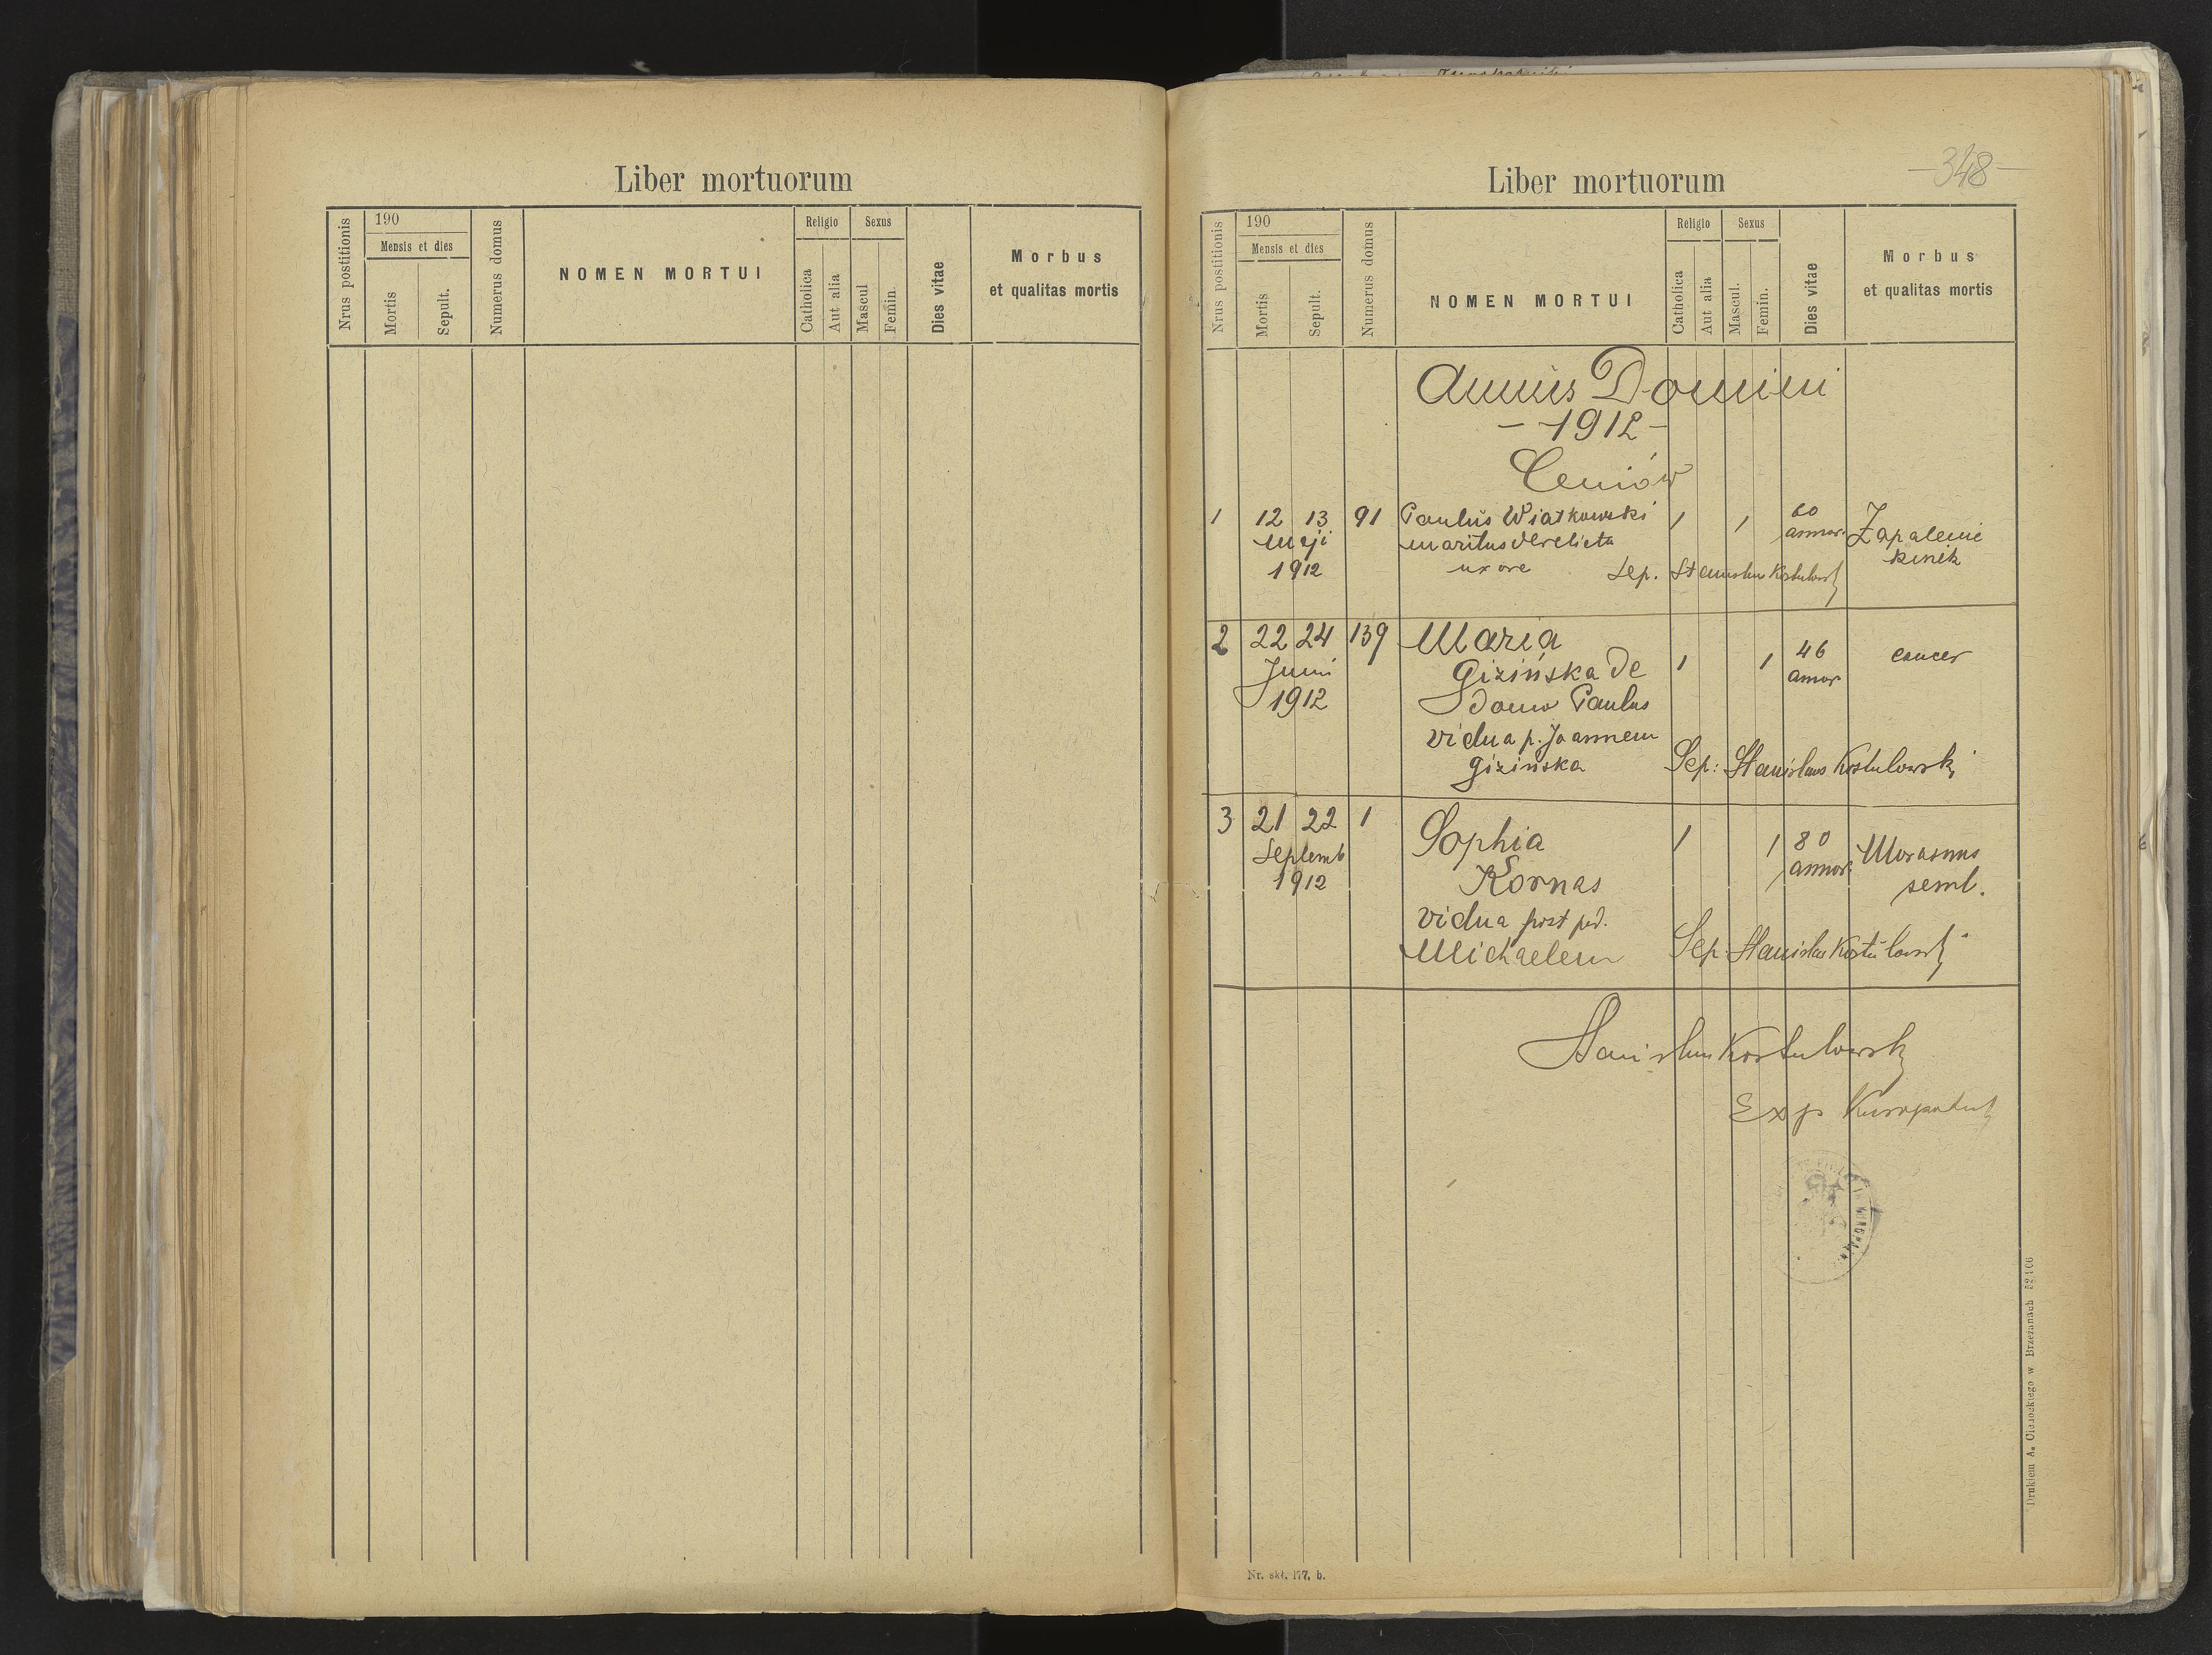 Liber mortuorum
Nrus postitionis
190
Mensis et dies
Mortis
Sepult.
Numerus domus
NOMEN MORTUI
Religio
Catholica
Aut alia
Sexus
Mascul
Femin.
Dies vitae
Morbus
et qualitas mortis
-348-
Liber mortuorum
Nrus postitionis
190
Mensis et dies
Mortis
Sepult.
Numerus domus
NOMEN MORTUI
Religio
Catholica
Aut alia
Sexus
Mascul.
Femin.
Dies vitae
Morbus
et qualitas mortis
Annus Domini
- 1912 -
Ceniów
1 12 13 91 Paulus Wiatkowski 1 1 60 Zapalenie
maji maritus derelicta annor.
1912 uxore Sep. Stanislaus Kostulowski
2 22 24 139 Maria 1 1 46 cancer
Junii Gizińska de annor
1912 domo Paulus
vidua p. Joannem
Gizińska Sep: Stanislaus Kostulowski
3 21 22 1 Sophia 1 1 80 Morasmus
Septemb Kornas annor.
1912
vidua post
Michaelem Sep: Stanislaus Kostulowski
Stanislaus Kostulowski
Exp
Nr. skł. 177. b.
Drukiem A. w Brzeżanach